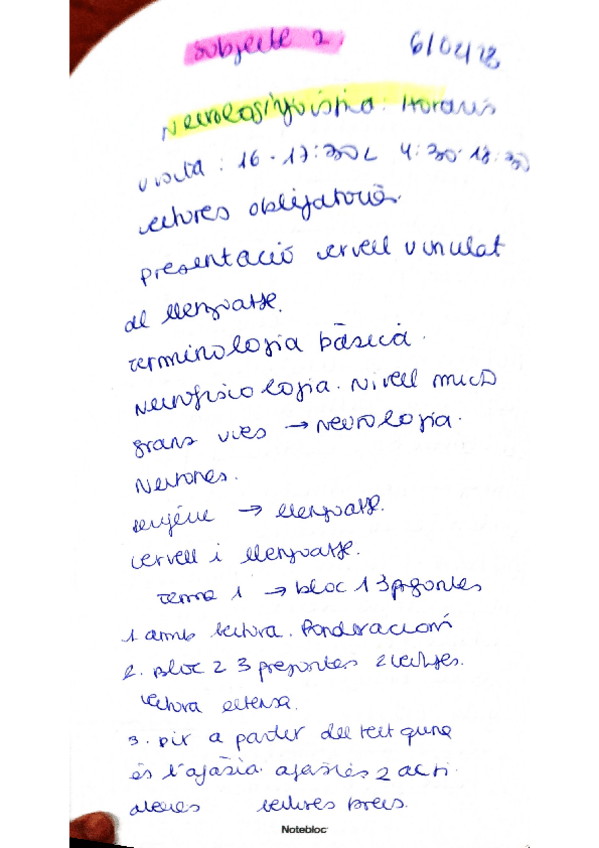 Subjecte 2. 6/02/18
Neurolingüística: Horaris
visita: 16-17:30 L 4:30-18:30
lectures obligatories.
presentació cervell vinculat
al llenguatge.
Terminologia bàsica.
Neurofisiologia. Nivell micro
grans vies → Neurologia.
Neurones.
→ llenguatge.
cervell i llenguatge.
Tema 1 → bloc 1 3 preguntes
1. amb lectura. Ponderació
2. Bloc 2 3 preguntes 2 lectures.
lectura extensa.
3. Dir a partir del text quina
és l'afàsia. afàsies 2 acti
lectures breus.
Notebloc